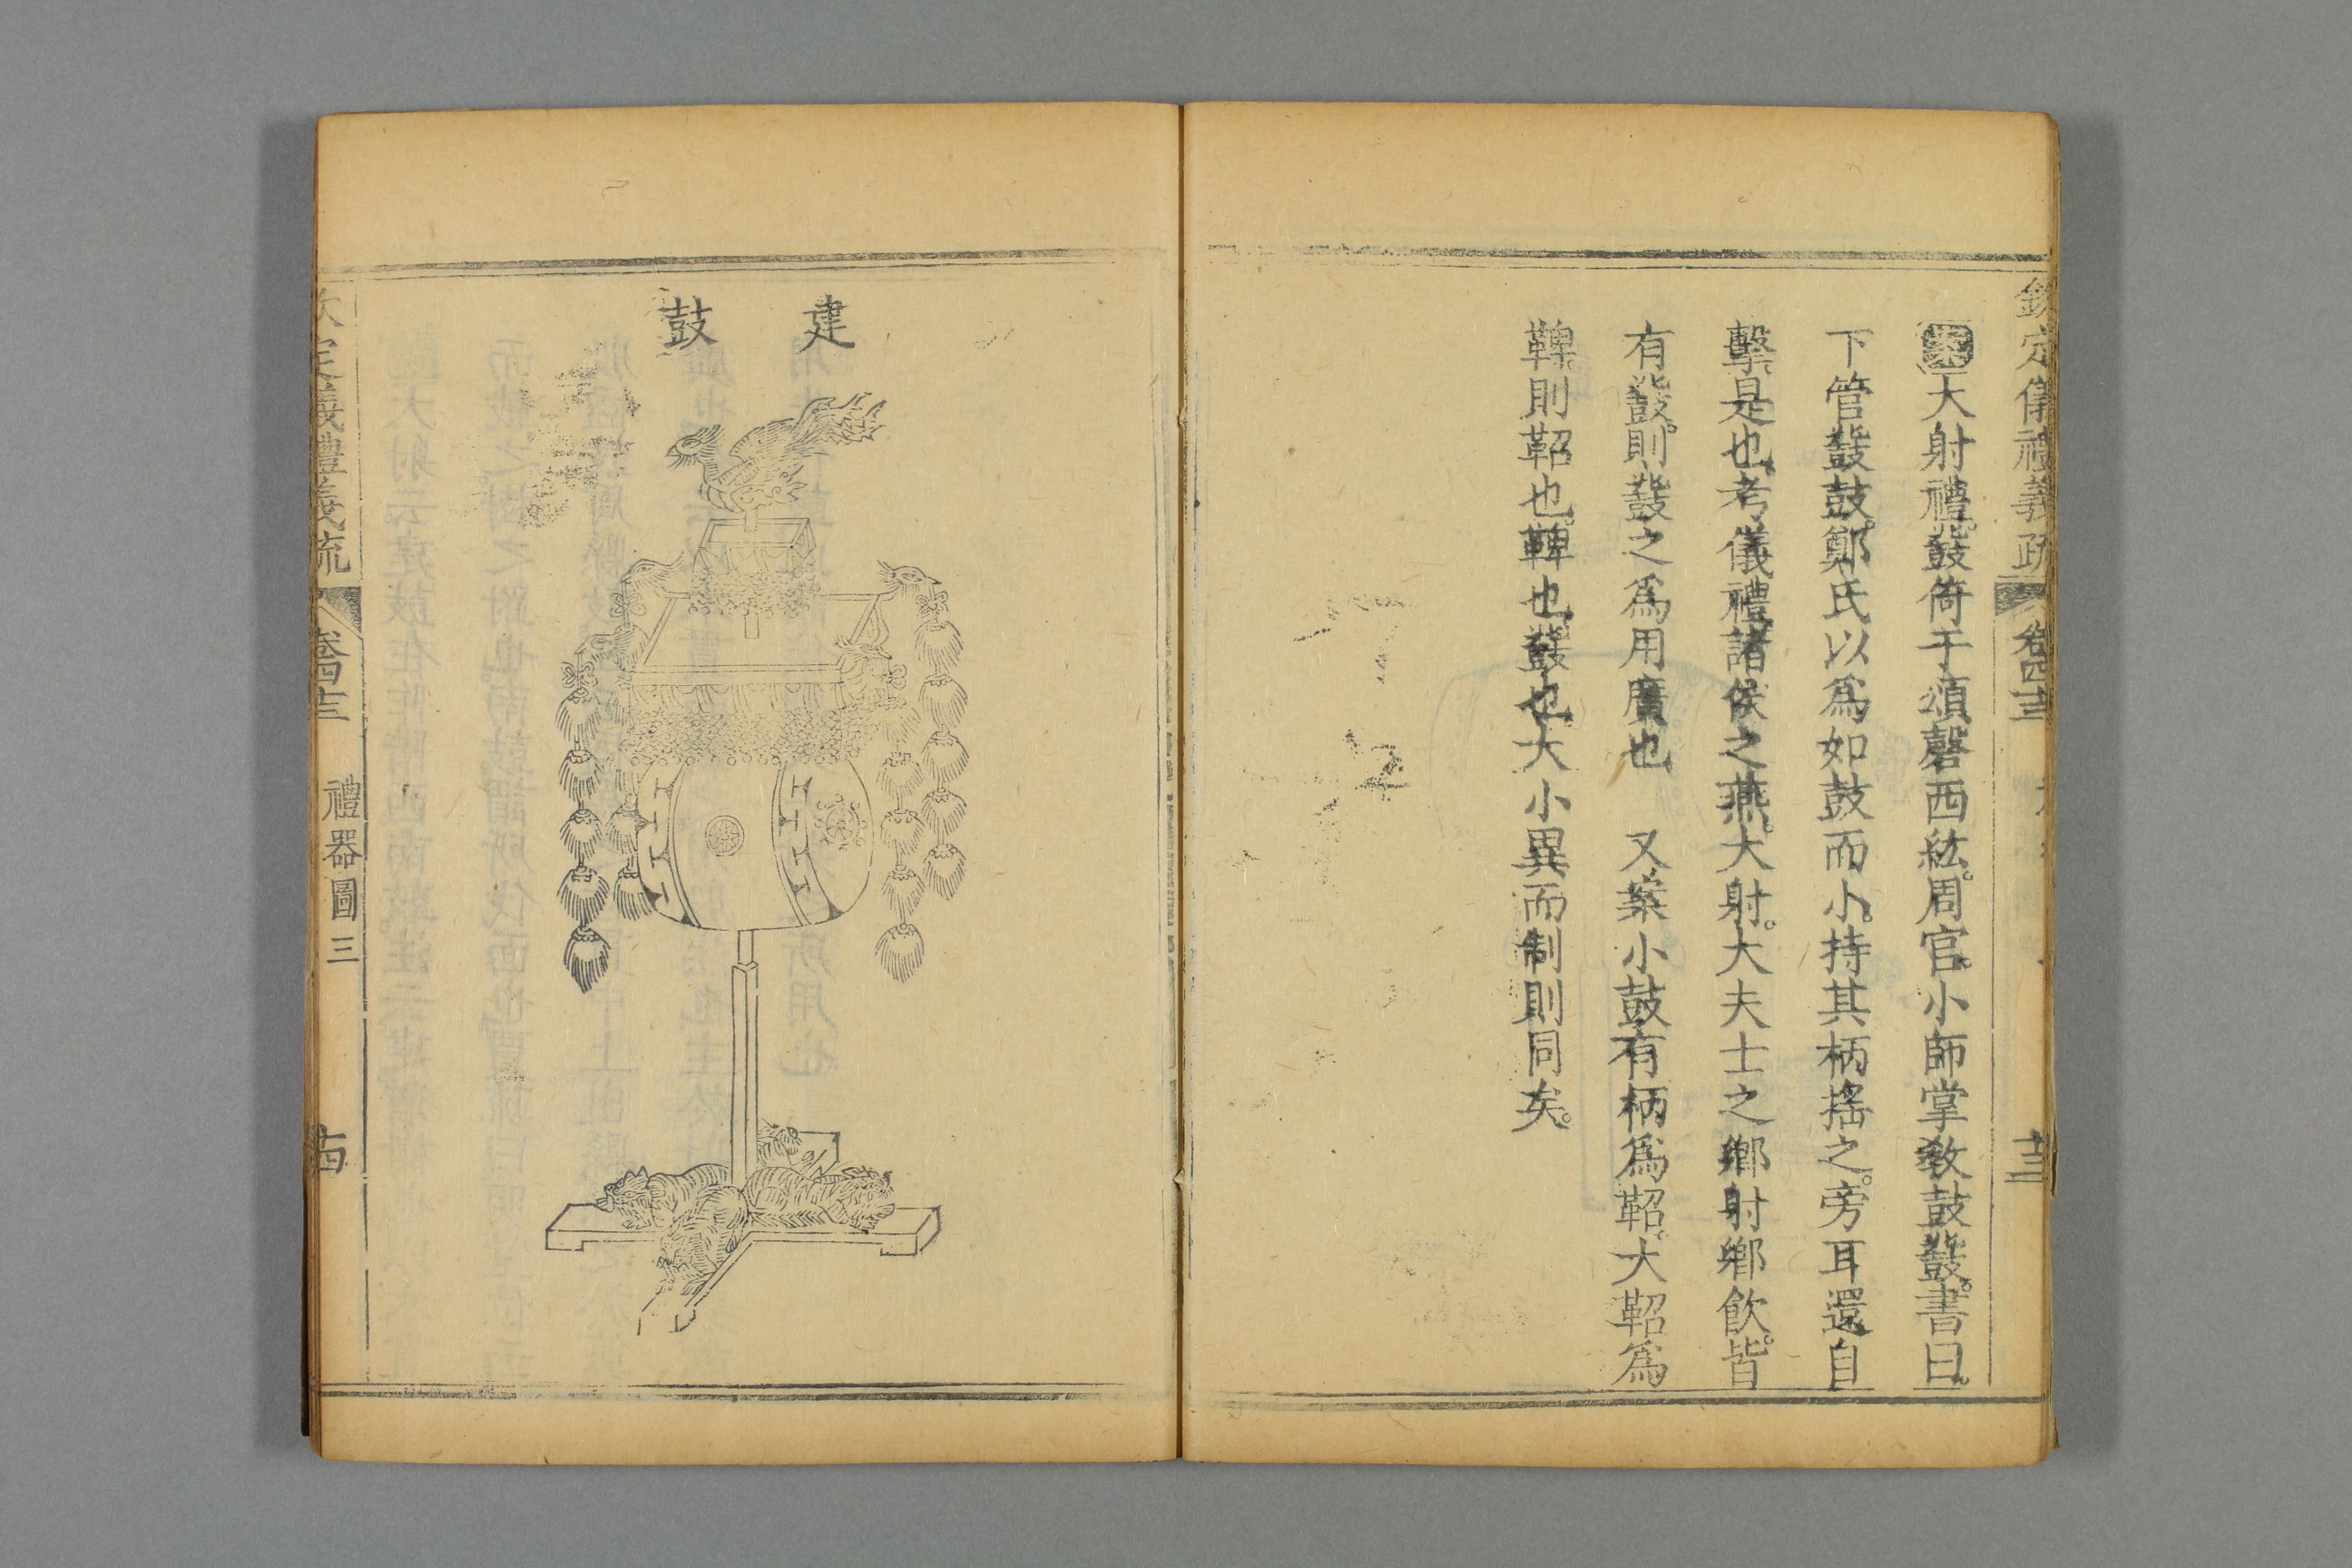 欽定儀禮義疏 卷四十三 十三
案大射禮。鼗倚于頌磬西紘。周官。小師掌教鼓鼗。書曰。
下管鼗鼓。鄭氏以爲如鼓而小。持其柄搖之。旁耳還自
擊。是也。考儀禮。諸侯之燕。大射。大夫士之鄉射鄉飲。皆
有鼗。則鼗之爲用廣也 又案小鼓有柄爲鞀。大鞀爲
鞞。則鞀也。鞞也。鼗也。大小異而制則同矣。
建鼓
欽定儀禮義疏 卷四十三 禮器圖三 十四